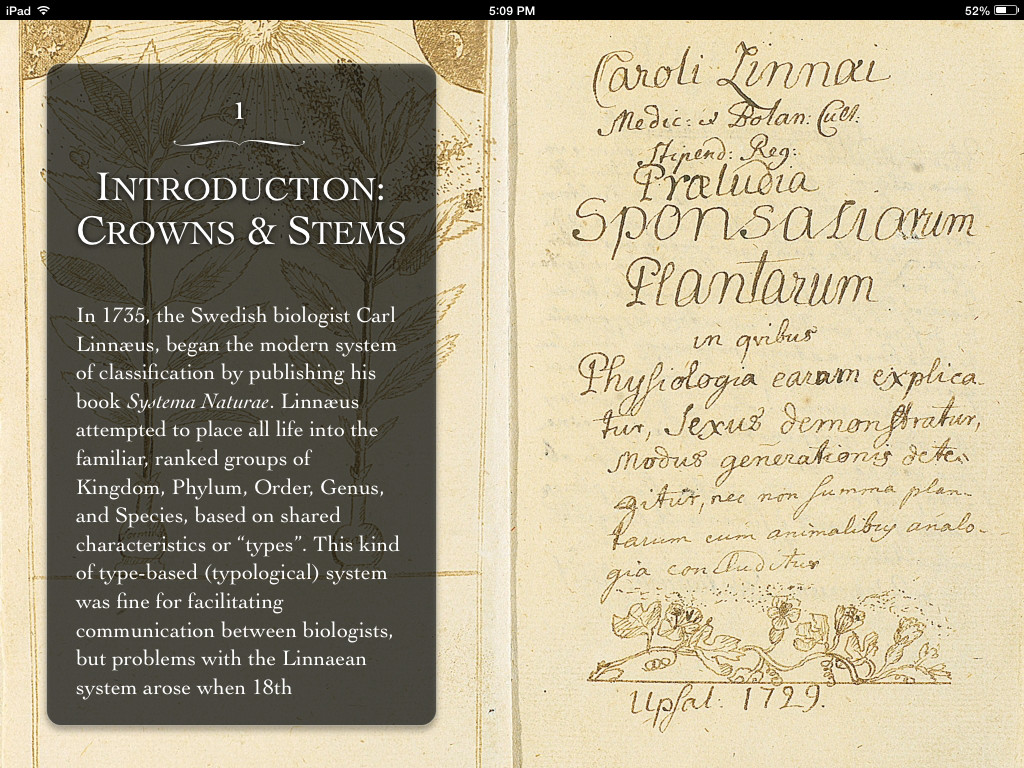 iPad 5:09 PM 52%
1
INTRODUCTION:
CROWNS & STEMS
In 1735, the Swedish biologist Carl
Linnæus, began the modern system
of classification by publishing his
book Systema Naturae. Linnæus
attempted to place all life into the
familiar, ranked groups of
Kingdom, Phylum, Order, Genus,
and Species, based on shared
characteristics or “types”. This kind
of type-based (typological) system
was fine for facilitating
communication between biologists,
but problems with the Linnaean
system arose when 18th
Caroli Linnæi
Medic: & Botan: Cult:
Stipend: Reg:
Præludia
Sponsaliarum
Plantarum
in qvibus
Physiologia earum explica-
tur, Sexus demonstratur,
Modus generationis dete-
gitur, nec non summa plan-
tarum cum animalibus analo-
gia concluditur
Upsal: 1729.